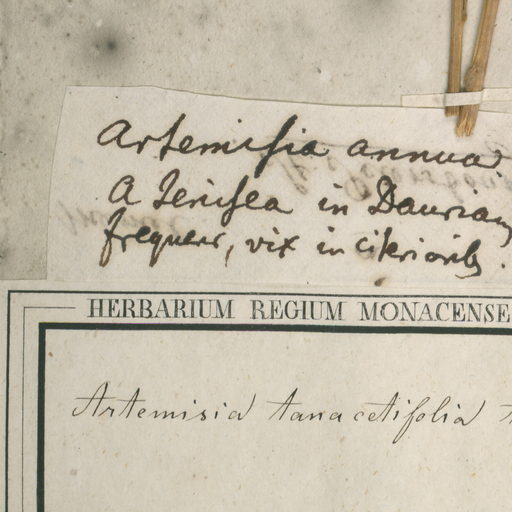 Artemisia annua.
A Jenisea in Dauriam
frequens, vix in citerioribg.
HERBARIUM REGIUM MONACENSE
Artemisia tanacetifolia